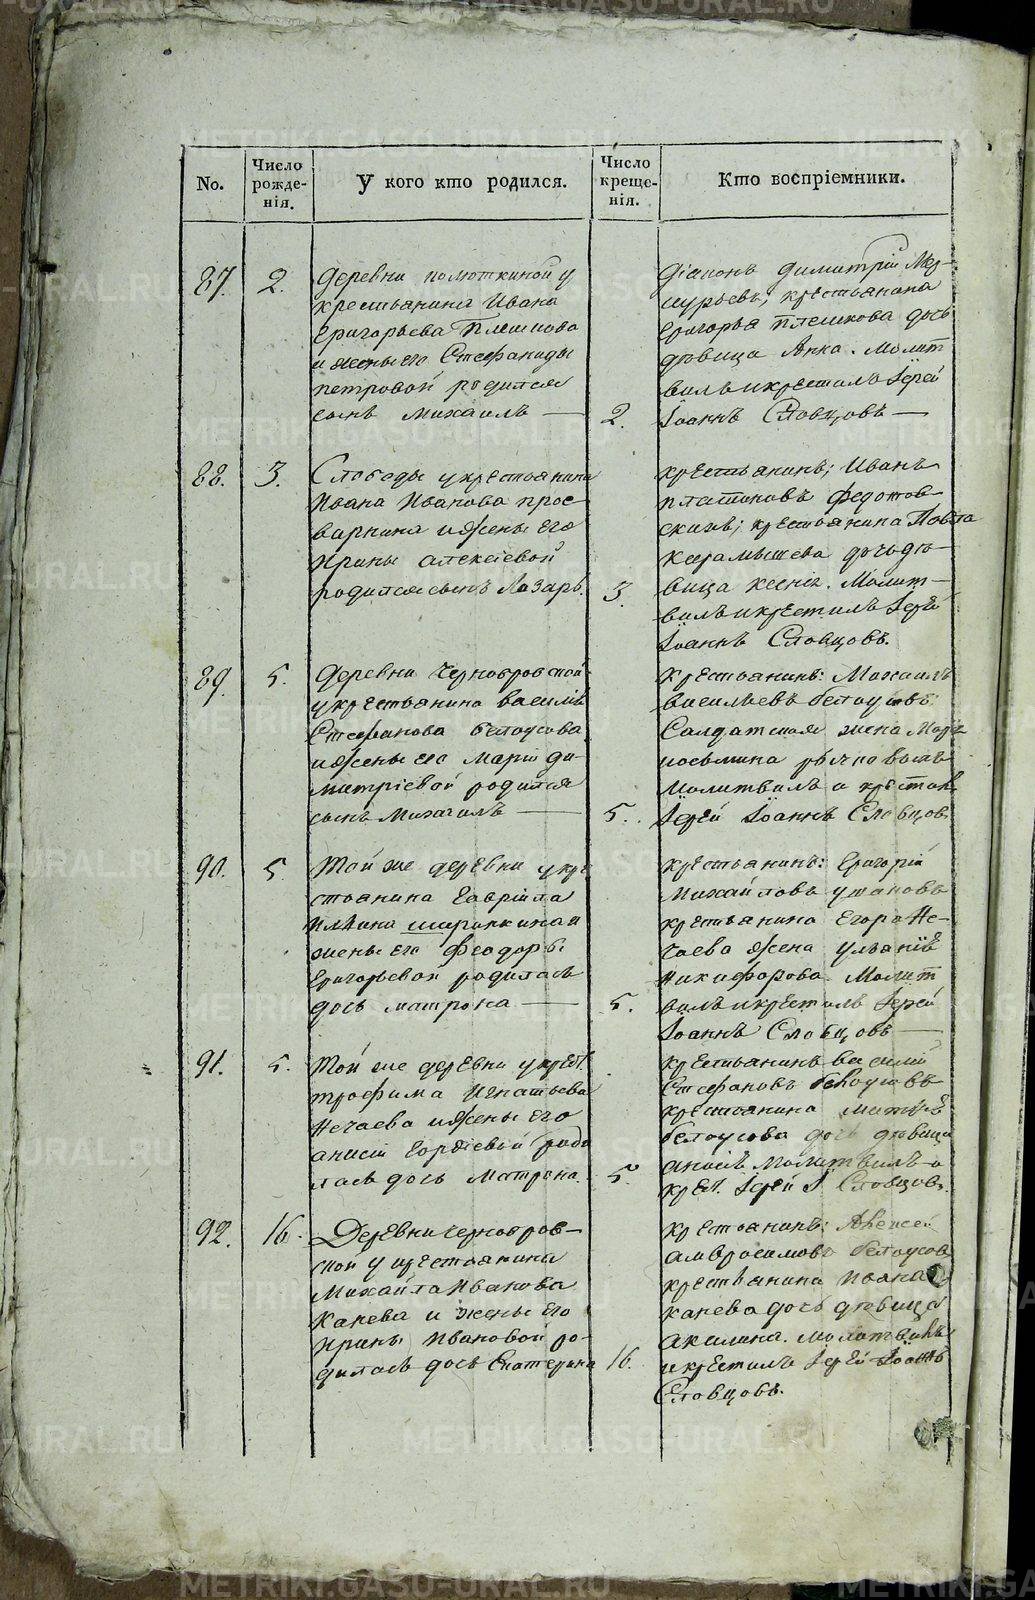 No.
Число рожде-нія.
У кого кто родился.
Число креще-нія.
Кто воспріемники.
87.
2.
деревни полюткиной у
крестьянина Ивана
Григорьева Плешкова
и жены его Стефаниды
петровой родился
сынъ Михаилъ —
2.
діаконъ Димитрій
крестьянина
Григорья плешкова дочь
дѣвица Анна. Молит
вилъ и крестилъ Іерей
Іоаннъ Словцовъ —
88.
3.
Слободы у крестьянина
Ивана Иванова прос
варнина и жены его
Ирины алексіевой
родился сынъ Лазарь.
3.
крестьянинъ; Иванъ
платоновъ федотов-
скихъ; крестьянина Павла
карамышева дочь дѣ-
вица ксенія. Молит-
вилъ и крестилъ Іерей
Іоаннъ Словцовъ.
89.
5.
деревни Чернобровской
у крестьянина василія
Стефанова белоусова
и жены его Маріи ди-
митріевой родился
сынъ Михаилъ —
5.
крестьянинъ: Михаилъ
васильевъ белоусовъ
Солдатская жена
Молитвилъ и крестилъ
Іерей Іоаннъ Словцовъ
90.
5.
Той же деревни у кре
стьянина Гавріила
Ильина ширинкина и
жены его Феодоры
Григорьевой родилась
дочь матрона —
5.
крестьянинъ: Григорій
Михайловъ ушаковъ
крестьянина Егора Не-
чаева жена уліанія
Никифорова. Молит
вилъ и крестилъ Іерей
Іоаннъ Словцовъ —
91.
5.
Той же деревни у крест.
трофима Игнатьева
Нечаева и жены его
анисіи Гордіевой роди
лась дочь Матрона.
5.
крестьянинъ василій
Стефановъ белоусовъ
крестьянина
белоусова дочь дѣвица
Молитвилъ и
крест. Іерей І. Словцовъ.
92.
16.
Деревни чернобров-
ской у крестьянина
Михайла Иванова
Канева и жены его
Ирины Ивановой ро-
дилась дочь Екатерина
16.
крестьянинъ: Алексей
амвросимовъ белоусов
крестьянина Ивана
канева дочь дѣвица
акилина. молитвилъ
и крестилъ Іерей Іоаннъ
Словцовъ.
METRIKI.GASO-URAL.RU